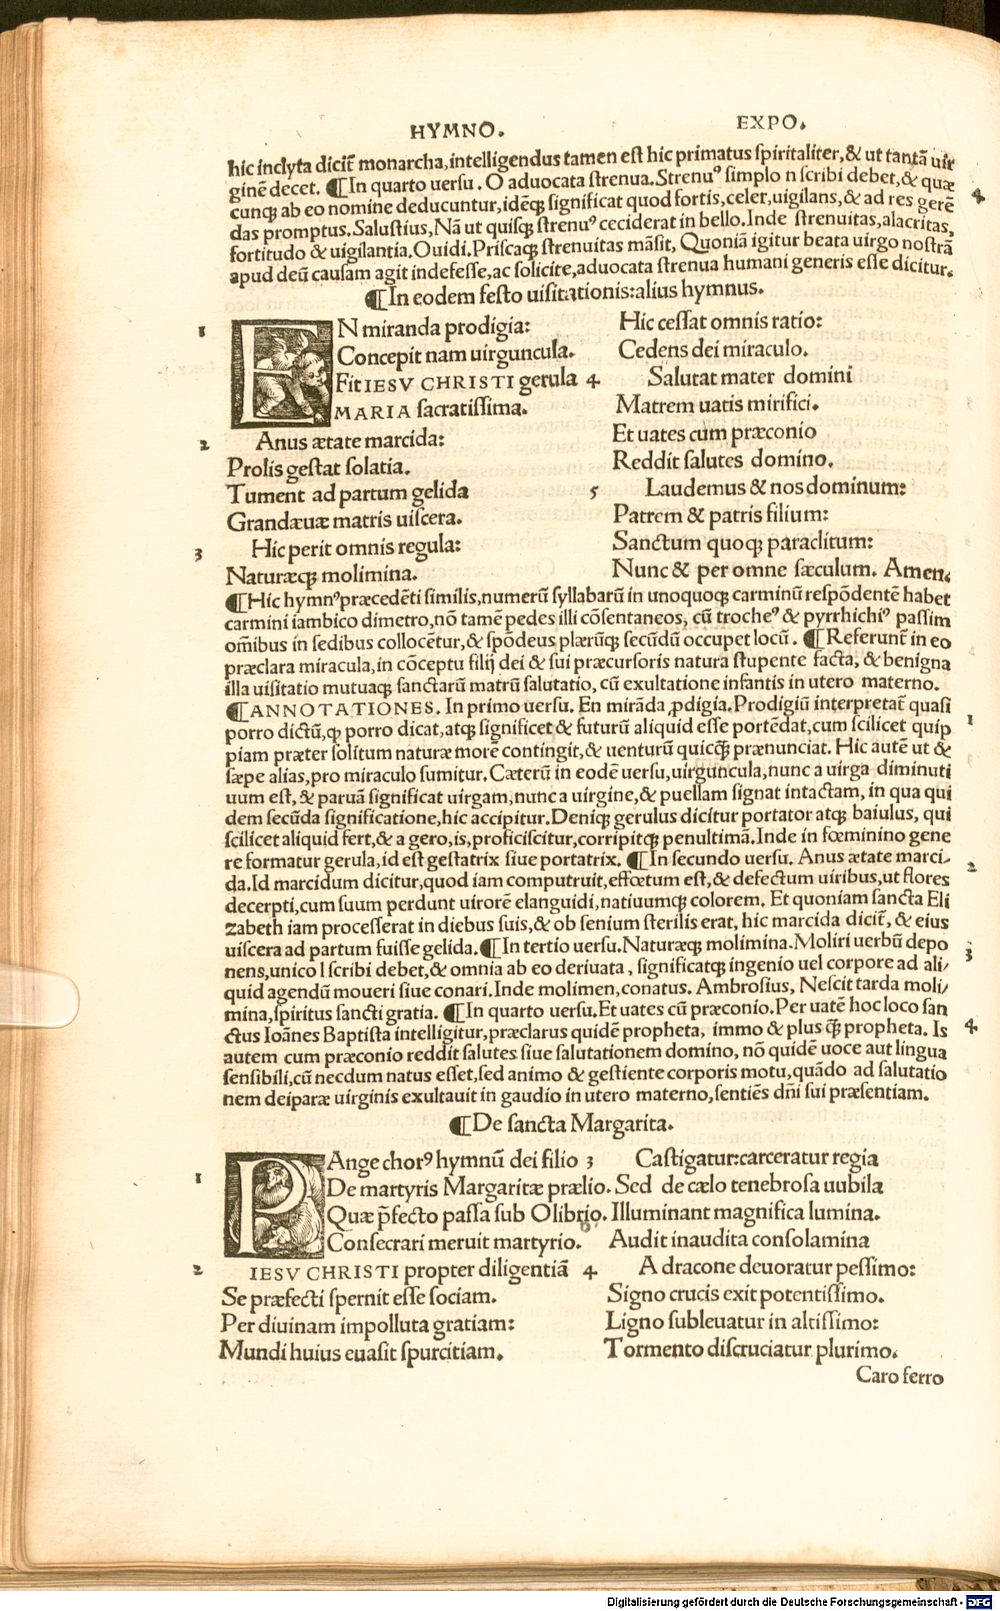 HYMNO. EXPO.
hic inclyta dicit̃ monarcha,intelligendus tamen est hic primatus spiritaliter,& ut tantã uir
ginẽ decet. ¶In quarto uersu. O aduocata strenua.Strenuꝰ simplo n scribi debet,& quæ
cunq; ab eo nomine deducuntur,idẽq; significat quod fortis,celer,uigilans,& ad res gerẽ
das promptus.Salustius,Nã ut quisq; strenuꝰ ceciderat in bello.Inde strenuitas,alacritas,
fortitudo & uigilantia.Ouidi.Priscaq; strenuitas mãsit, Quoniã igitur beata uirgo nostrã
apud deũ causam agit indefesse,ac solicite,aduocata strenua humani generis esse dicitur.
4
¶In eodem festo uisitationis:alius hymnus.
1 EN miranda prodigia:
Concepit nam uirguncula.
Fit IESV CHRISTI gerula
MARIA sacratissima.
2 Anus ætate marcida:
Prolis gestat solatia.
Tument ad partum gelida
Grandæuæ matris uiscera.
3 Hic perit omnis regula:
Naturæq; molimina.
Hic cessat omnis ratio:
Cedens dei miraculo.
4 Salutat mater domini
Matrem uatis mirifici.
Et uates cum præconio
Reddit salutes domino.
5 Laudemus & nos dominum:
Patrem & patris filium:
Sanctum quoq; paraclitum:
Nunc & per omne sæculum. Amen.
¶Hic hymnꝰ præcedẽti similis,numerũ syllabarũ in unoquoq; carminũ respõdentẽ habet
carmini iambico dimetro,nõ tamẽ pedes illi cõsentaneos, cũ trocheꝰ & pyrrhichiꝰ passim
om̃ibus in sedibus collocẽtur,& spõdeus plærũq; secũdũ occupet locũ. ¶Referunt̃ in eo
præclara miracula,in cõceptu filij dei & sui præcursoris natura stupente facta, & benigna
illa uisitatio mutuaq; sanctarũ matrũ salutatio, cũ exultatione infantis in utero materno.
¶ANNOTATIONES. In primo uersu. En mirãda ꝓdigia.Prodigiũ interpretat̃ quasi
porro dictũ,ꝙ porro dicat,atq; significet & futurũ aliquid esse portẽdat,cum scilicet quip
piam præter solitum naturæ morẽ contingit,& uenturũ quicq̃ prænunciat. Hic autẽ ut &
sæpe alias,pro miraculo sumitur.Cæterũ in eodẽ uersu,uirguncula,nunc a uirga diminuti
uum est, & paruã significat uirgam,nunc a uirgine,& puellam signat intactam, in qua qui
dem secũda significatione,hic accipitur. Deniq; gerulus dicitur portator atq; baiulus, qui
scilicet aliquid fert,& a gero,is,proficiscitur,corripitq; penultimã.Inde in fœminino gene
re formatur gerula,id est gestatrix siue portatrix. ¶In secundo uersu. Anus ætate marci-
da.Id marcidum dicitur,quod iam computruit,effœtum est,& defectum uiribus,ut flores
decerpti,cum suum perdunt uirorẽ elanguidi,natiuumq; colorem. Et quoniam sancta Eli
zabeth iam processerat in diebus suis,& ob senium sterilis erat, hic marcida dicit̃, & eius
uiscera ad partum fuisse gelida.¶In tertio uersu.Naturæq; molimina.Moliri uerbũ depo
nens,unico l scribi debet,& omnia ab eo deriuata, significatq; ingenio uel corpore ad ali/
quid agendũ moueri siue conari.Inde molimen,conatus. Ambrosius, Nescit tarda moli/
mina,spiritus sancti gratia. ¶In quarto uersu.Et uates cũ præconio.Per uatẽ hoc loco san
ctus Ioãnes Baptista intelligitur,præclarus quidẽ propheta, immo & plus q̃ propheta. Is
autem cum præconio reddit salutes siue salutationem domino, nõ quidẽ uoce aut lingua
sensibili,cũ necdum natus esset,sed animo & gestiente corporis motu,quãdo ad salutatio
nem deiparæ uirginis exultauit in gaudio in utero materno,sentiẽs dñi sui præsentiam.
1
2
3
4
¶De sancta Margarita.
1 PAnge chorꝰ hymnũ dei filio
De martyris Margaritæ prælio.
Quæ p̃fecto passa sub Olibrio.
Consecrari meruit martyrio.
2 IESV CHRISTI propter diligentiã
Se præfecti spernit esse sociam.
Per diuinam impolluta gratiam:
Mundi huius euasit spurcitiam.
3 Castigatur:carceratur regia
Sed de cælo tenebrosa uubila
Illuminant magnifica lumina.
Audit inaudita consolamina
4 A dracone deuoratur pessimo:
Signo crucis exit potentissimo.
Ligno subleuatur in altissimo:
Tormento discruciatur plurimo.
Caro ferro
Digitalisierung gefördert durch die Deutsche Forschungsgemeinschaft - DFG